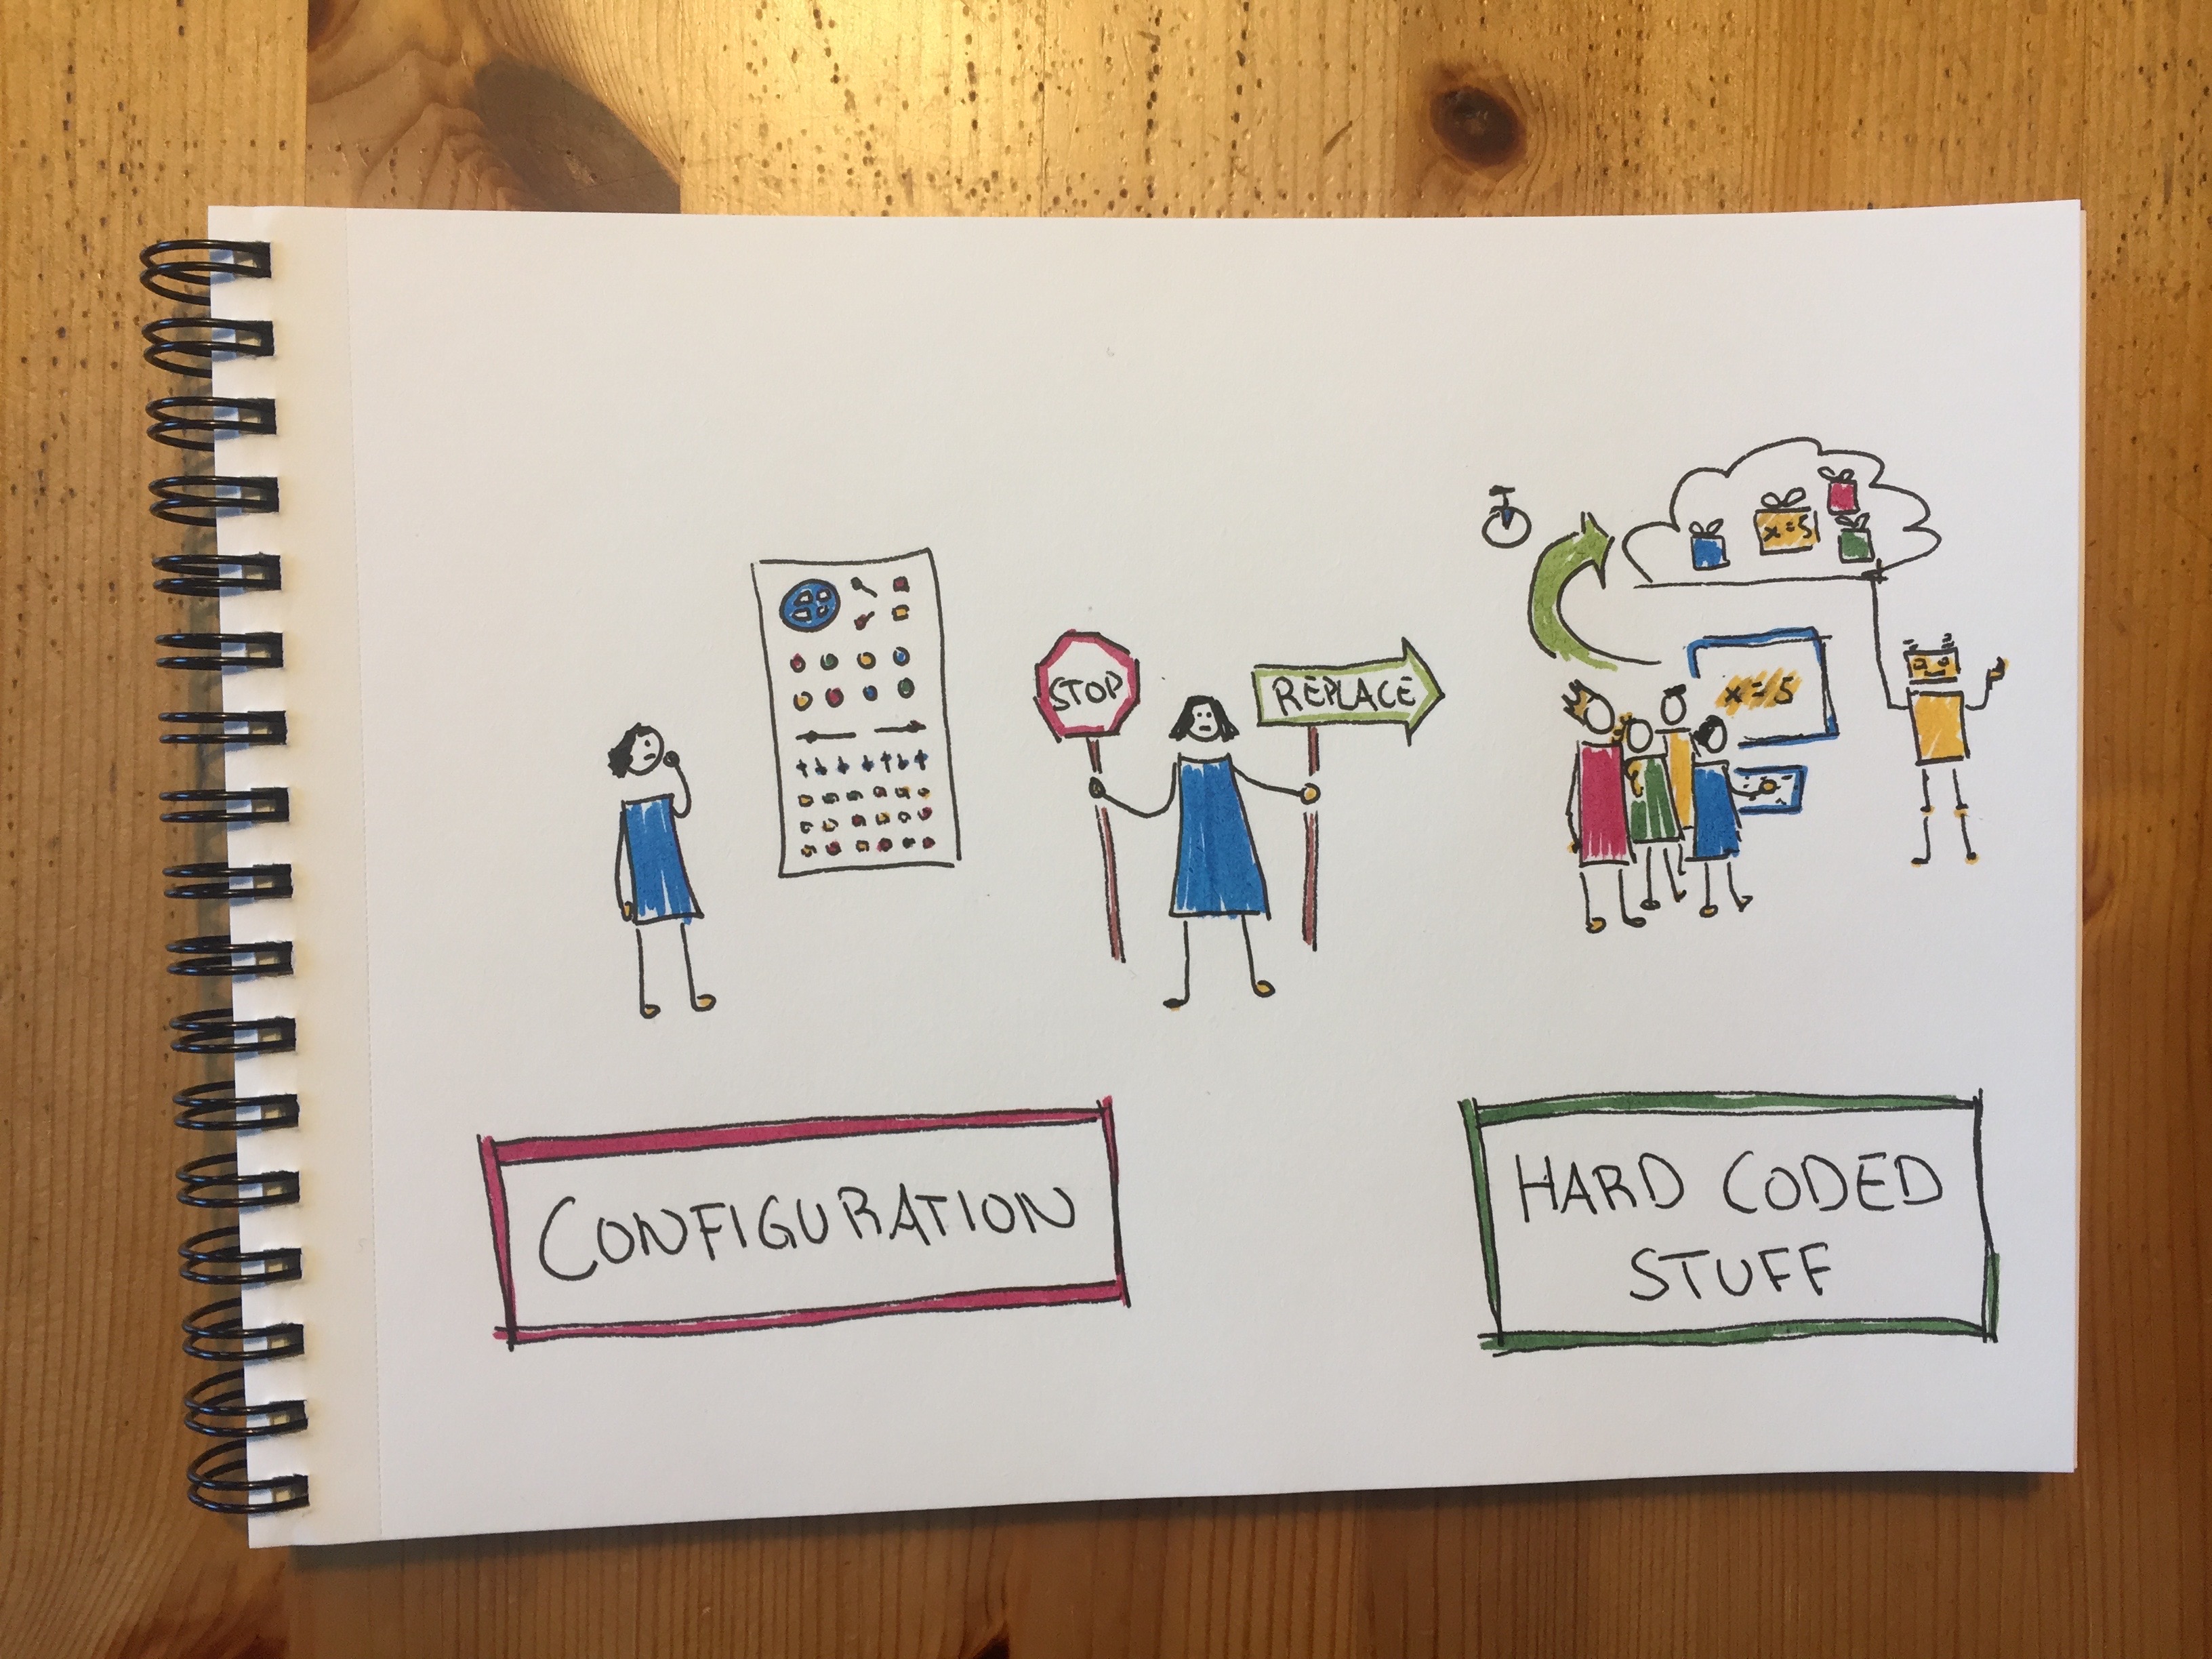 STOP
REPLACE
x=5
x=5
CONFIGURATION
HARD CODED
STUFF